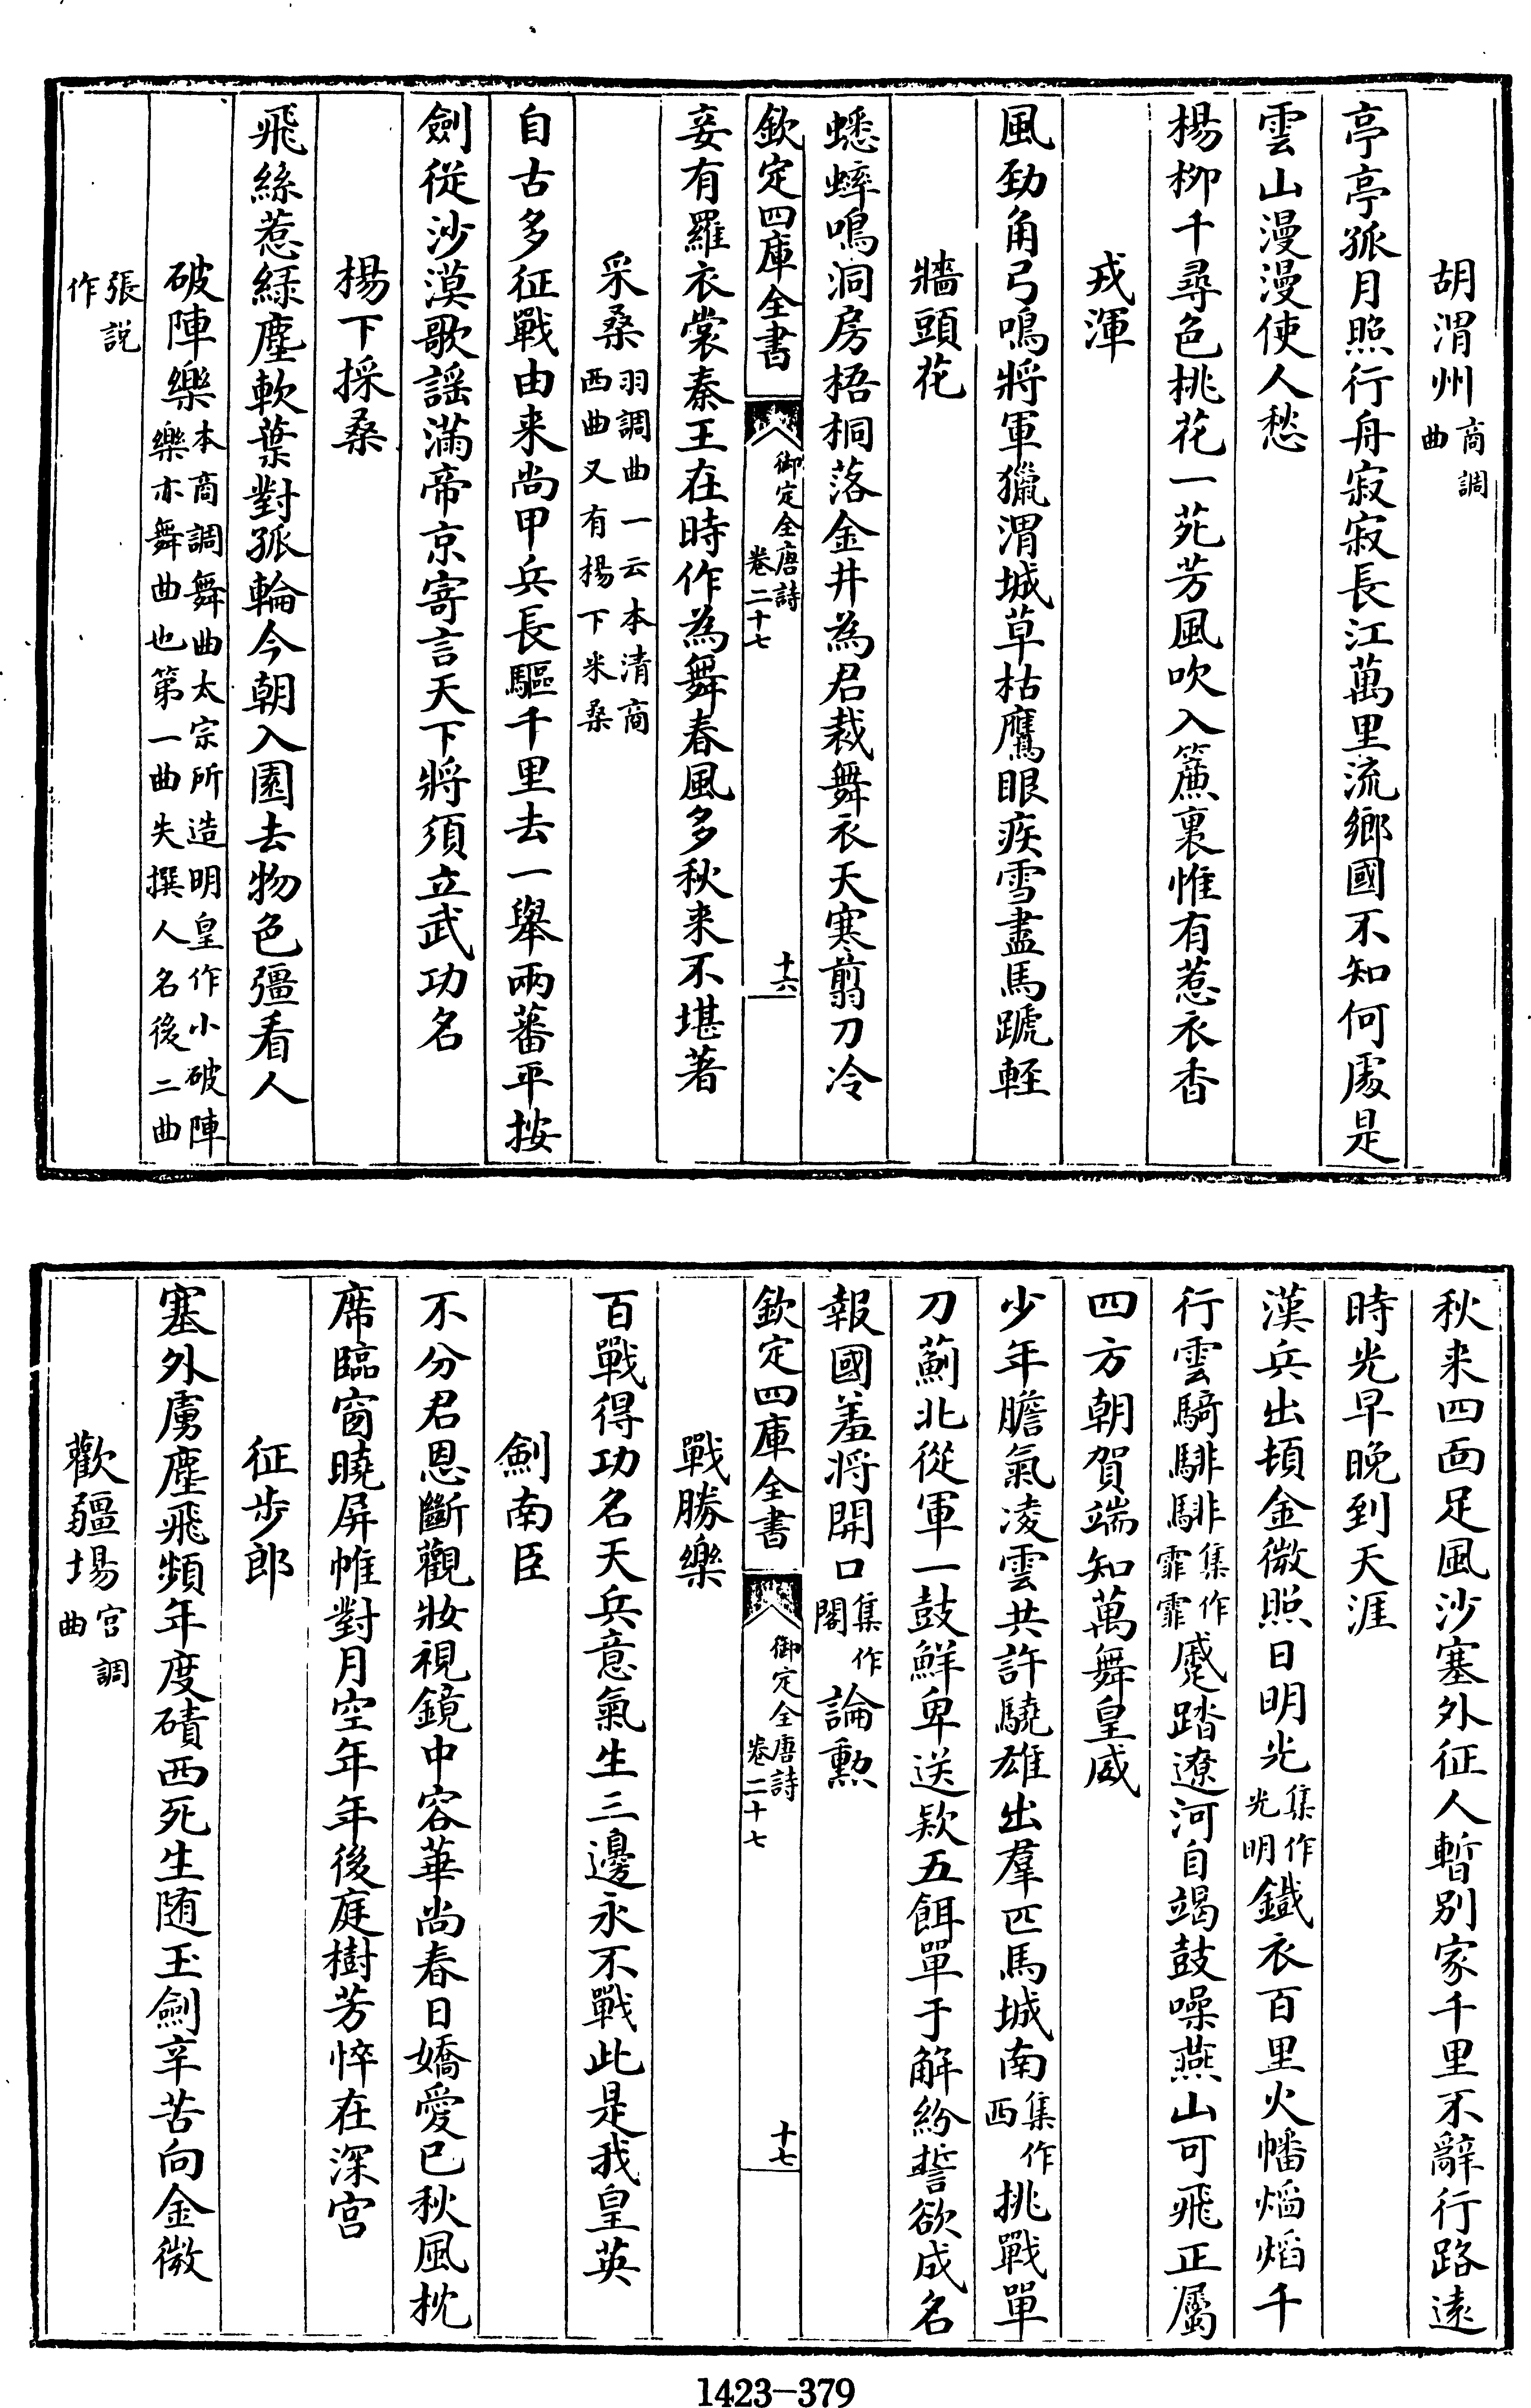 胡渭州商調曲
亭亭孤月照行舟寂寂長江萬里流鄉國不知何處是
雲山漫漫使人愁
楊柳千尋色桃花一苑芳風吹入簾裏惟有惹衣香
戎渾
風勁角弓鳴將軍獵渭城草枯鷹眼疾雪盡馬蹏輕
牆頭花
蟋蟀鳴洞房梧桐落金井為君裁舞衣天寒翦刀冷
欽定四庫全書 御定全唐詩卷二十七 十六
妾有羅衣裳秦王在時作為舞春風多秋来不堪著
采桑羽調曲一云本清商西曲又有楊下米桑
自古多征戰由来尚甲兵長驅千里去一舉兩蕃平按
劍從沙漠歌謡滿帝京寄言天下將須立武功名
楊下採桑
飛絲惹緑塵軟葉對孤輪今朝入園去物色彊看人
破陣樂本商調舞曲太宗所造明皇作小破陣樂亦舞曲也第一曲失撰人名後二曲
張説作
秋来四面足風沙塞外征人暫别家千里不辭行路遠
時光早晚到天涯
漢兵出頓金微照日明光集作光明鐵衣百里火幡熖熖千
行雲騎騑騑集作霏霏蹙踏遼河自竭鼓噪燕山可飛正屬
四方朝賀端知萬舞皇威
少年膽氣凌雲共許驍雄出羣匹馬城南集作西挑戰單
刀薊北從軍一鼓鮮卑送欵五餌單于解紛誓欲成名
報國羞將開口集作閣論勲
欽定四庫全書 御定全唐詩卷二十七 十七
戰勝樂
百戰得功名天兵意氣生三邊永不戰此是我皇英
劍南臣
不分君恩斷觀妝視鏡中容華尚春日嬌愛已秋風枕
席臨窗曉屏帷對月空年年後庭樹芳悴在深宫
征步郎
塞外虜塵飛頻年度磧西死生随玉劍辛苦向金微
歡疆場宫調曲
1423—379